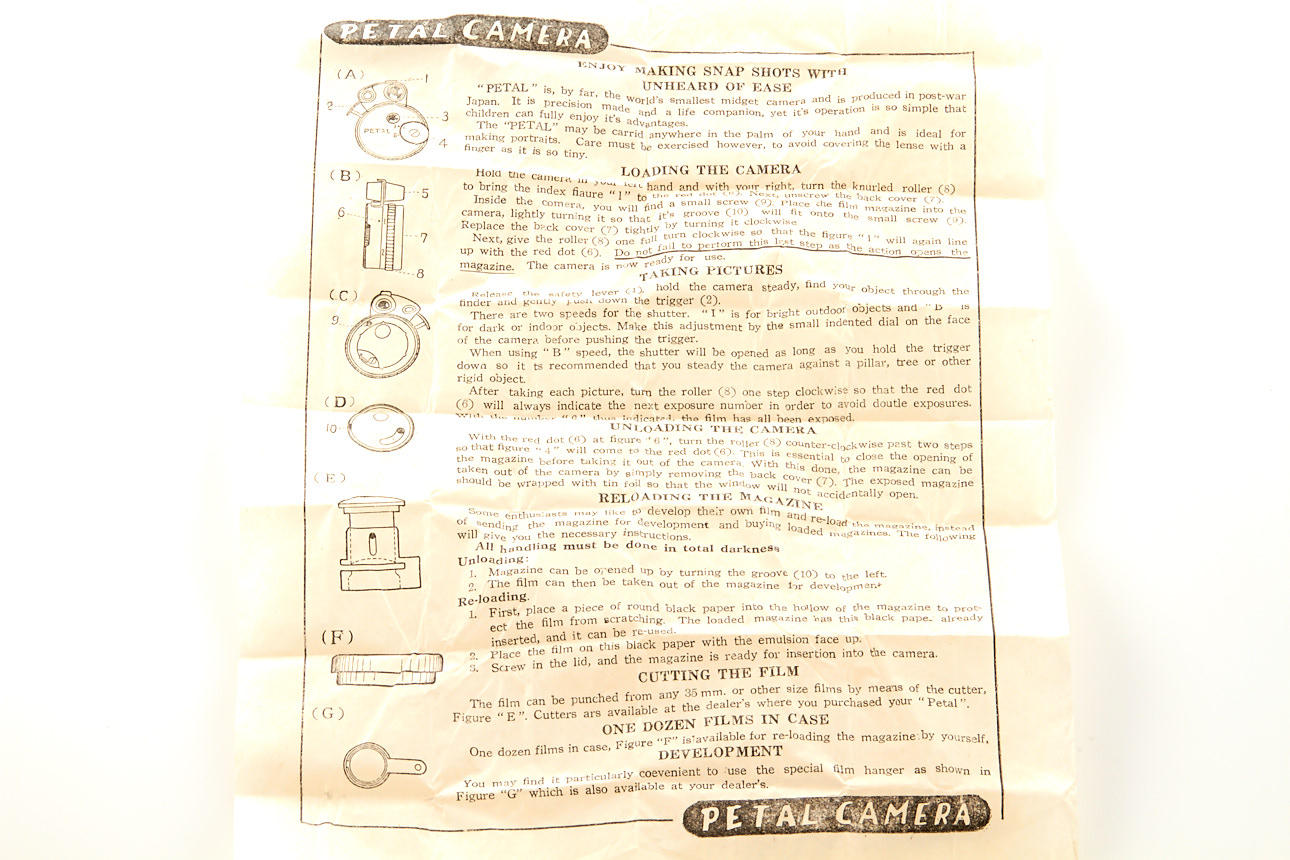 PETAL CAMERA
ENJOY MAKING SNAP SHOTS WITH
UNHEARD OF EASE
"PETAL" is, by far, the world's smallest midget camera and is produced in post-war
Japan. It is precision made and a life companion, yet it's operation is so simple that
children can fully enjoy it's advantages.
The "PETAL" may be carrid anywhere in the palm of your hand and is ideal for
making portraits. Care must be exercised however, to avoid covering the lense with a
finger as it is so tiny.
(A)
1
2
3
4
PETAL
LOADING THE CAMERA
Hold the camera in your left hand and with your right, turn the knurled roller (8)
to bring the index fiaure "1" to the red dot (6). Next, unscrew the back cover (7).
Inside the comera, you will find a small screw (9). Place the film magazine into the
camera, lightly turning it so that it's groove (10) will fit onto the small screw (9).
Replace the back cover (7) tightly by turning it clockwise
Next, give the roller (8) one full turn clockwise so that the figure "1" will again line
up with the red dot (6). Do not fail to perform this last step as the action opens the
magazine. The camera is now ready for use.
(B)
5
6
7
8
TAKING PICTURES
Release the safety lever (4), hold the camera steady, find your object through the
finder and gently push down the trigger (2).
There are two speeds for the shutter. "I" is for bright outdoor objects and "B" is
for dark or indoor objects. Make this adjustment by the small indented dial on the face
of the camera before pushing the trigger.
When using "B" speed, the shutter will be opened as long as you hold the trigger
down so it ts recommended that you steady the camera against a pillar, tree or other
rigid object.
After taking each picture, turn the roller (8) one step clockwise so that the red dot
(6) will always indicate the next exposure number in order to avoid doutle exposures.
With the number "6" thus indicated, the film has all been exposed.
(C)
9
(D)
10
UNLOADING THE CAMERA
With the red dot (6) at figure "6", turn the roller (8) counter-clockwise past two steps
so that figure "4" will come to the red dot (6). This is essential to close the opening of
the magazine before taking it out of the camera. With this done, the magazine can be
taken out of the camera by simply removing the back cover (7). The exposed magazine
should be wrapped with tin foil so that the window will not accidentally open.
(E)
RELOADING THE MAGAZINE
Some enthusiasts may like to develop their own film and re-load the magazine, instead
of sending the magazine for development and buying loaded magazines. The following
will give you the necessary instructions.
All handling must be done in total darkness
Unloading:
1. Magazine can be opened up by turning the groove (10) to the left.
2. The film can then be taken out of the magazine for development
Re-loading.
1. First, place a piece of round black paper into the hollow of the magazine to prot-
ect the film from scratching. The loaded magazine has this black paper already
inserted, and it can be re-used.
2. Place the film on this black paper with the emulsion face up.
3. Screw in the lid, and the magazine is ready for insertion into the camera.
(F)
CUTTING THE FILM
The film can be punched from any 35 mm. or other size films by means of the cutter,
Figure "E". Cutters ars available at the dealer's where you purchased your "Petal".
(G)
ONE DOZEN FILMS IN CASE
One dozen films in case, Figure "F" is available for re-loading the magazine by yourself,
DEVELOPMENT
You may find it particularly coevenient to use the special film hanger as shown in
Figure "G" which is also available at your dealer's.
PETAL CAMERA